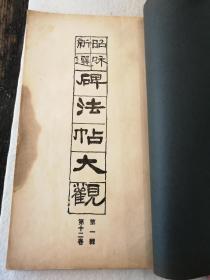 昭咊
新選
碑法帖大觀
第一輯
第十二卷